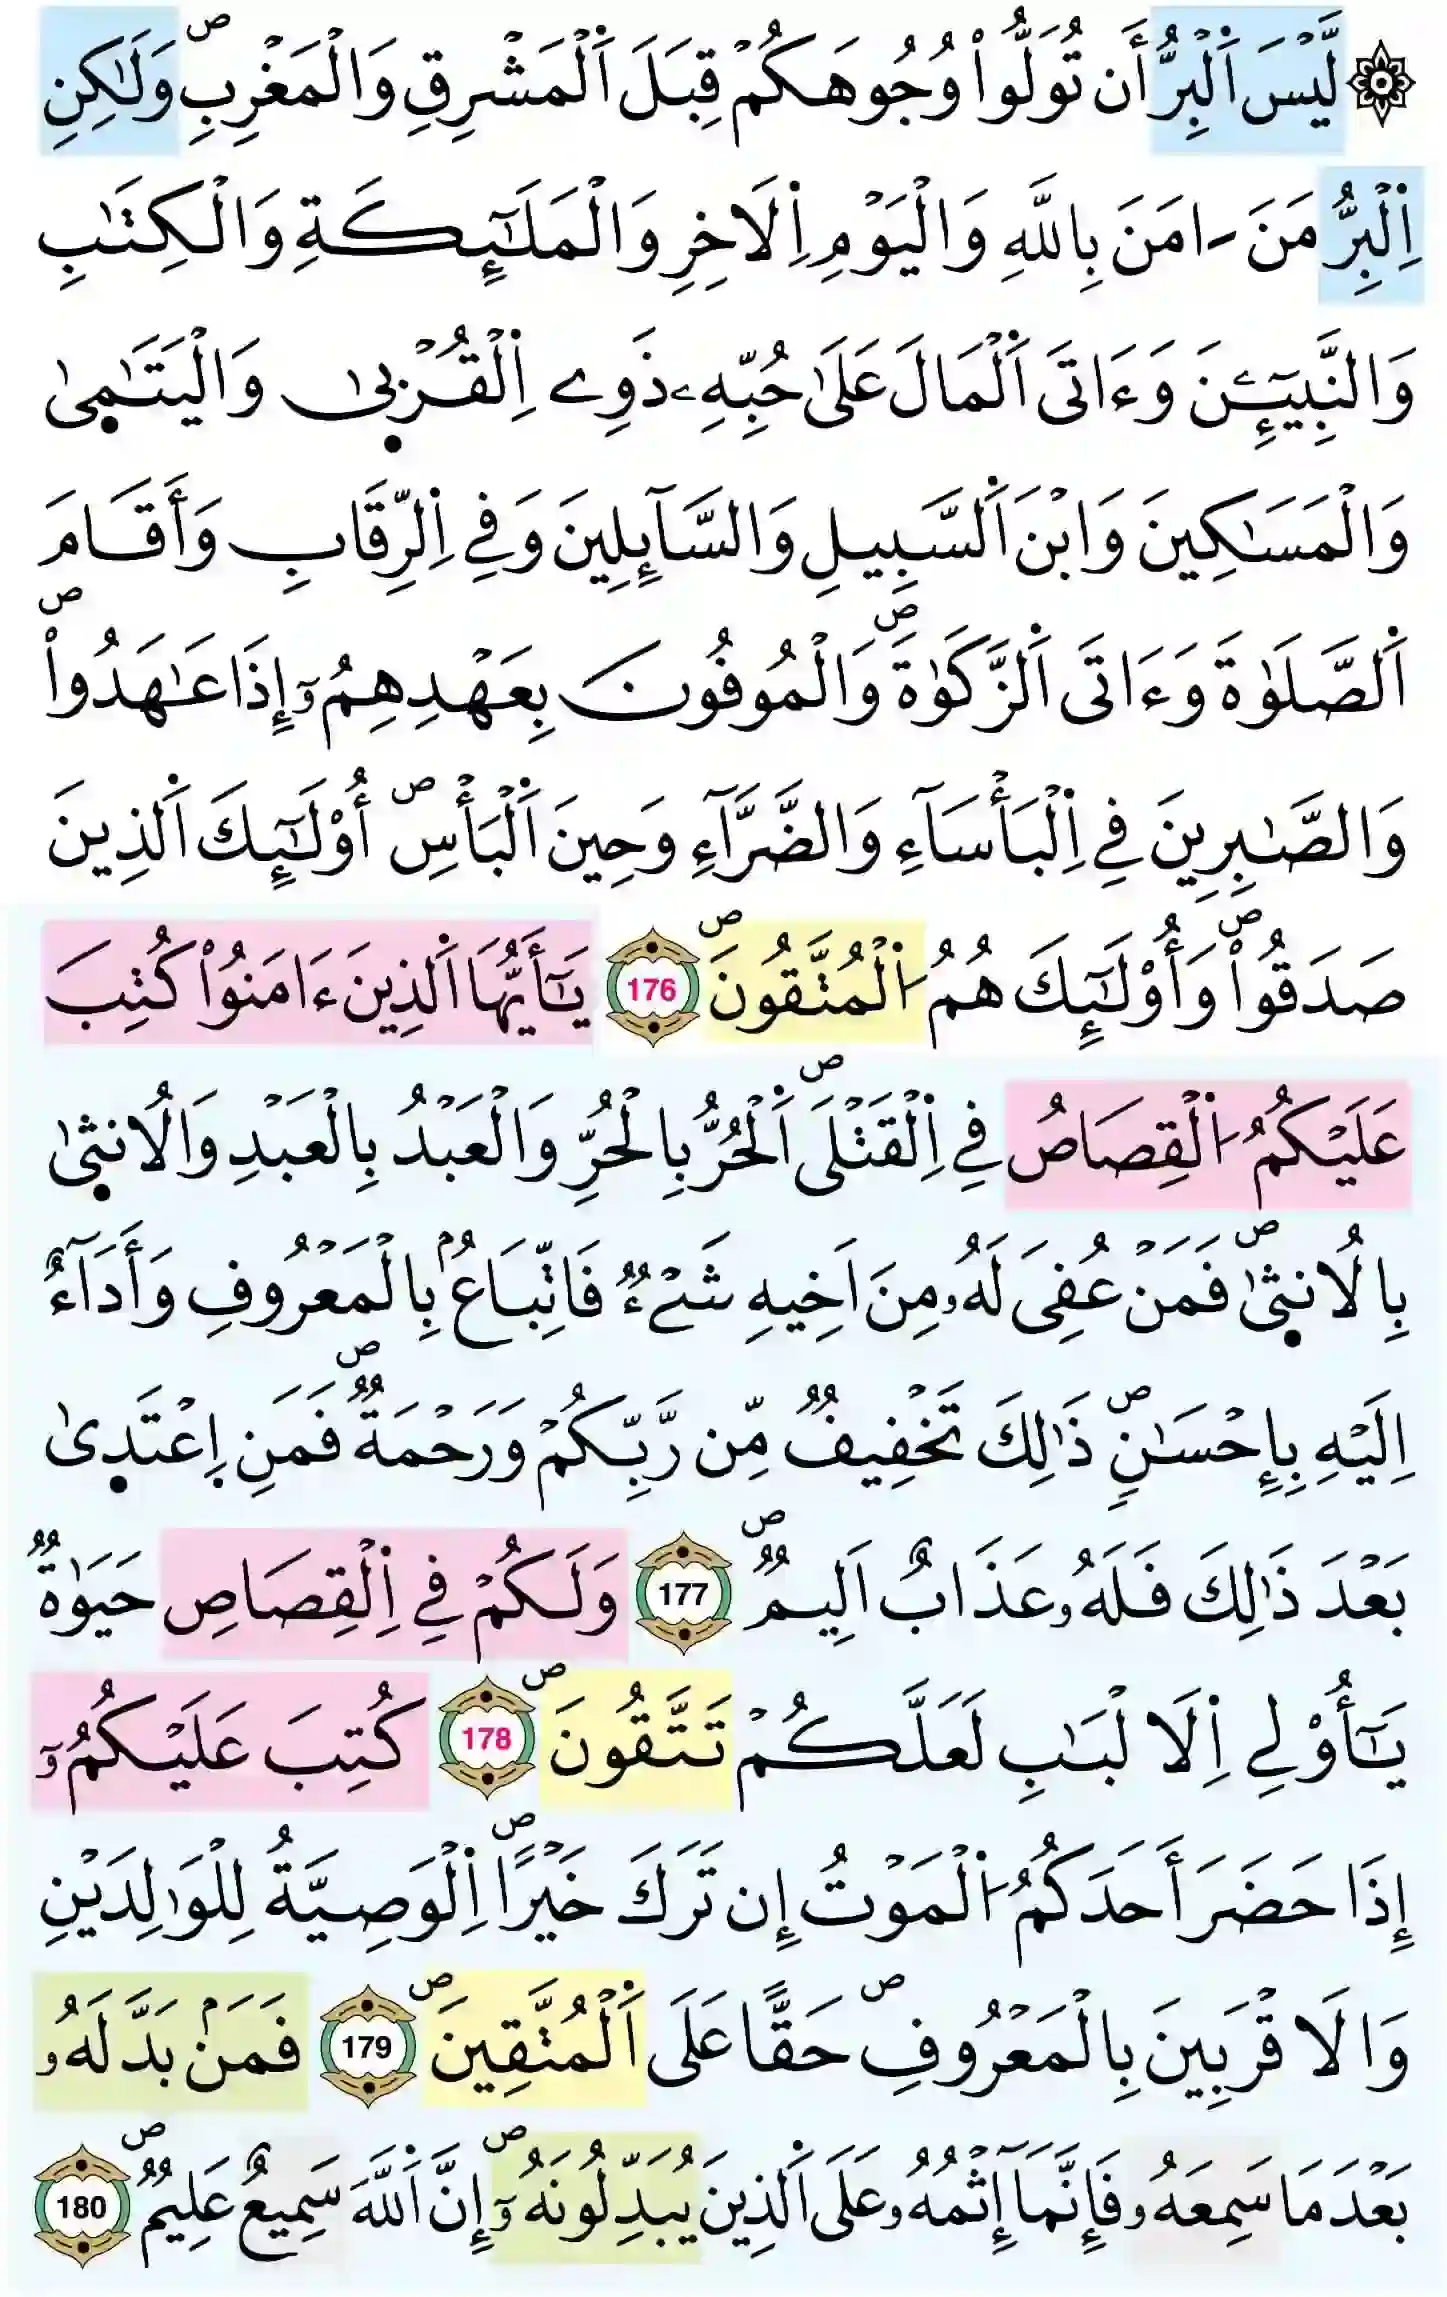 ۞ لَّيْسَ اَ۬لْبِرُّ أَن تُوَلُّواْ وُجُوهَكُمْ قِبَلَ اَ۬لْمَشْرِقِ وَالْمَغْرِبِۖ وَلَٰكِنِ
اِ۬لْبِرُّ مَنَ اٰمَنَ بِاللَّهِ وَالْيَوْمِ اِ۬لَاخِرِ وَالْمَلَٰٓئِكَةِ وَالْكِتَٰبِ
وَالنَّبِيٓـِٕينَ وَءَاتَى اَ۬لْمَالَ عَلَىٰ حُبِّهِۦ ذَوِے اِ۬لْقُرْب۪ىٰ وَالْيَتَٰم۪ىٰ
وَالْمَسَٰكِينَ وَابْنَ اَ۬لسَّبِيلِ وَالسَّآئِلِينَ وَفِي اِ۬لرِّقَابِ وَأَقَامَ
اَ۬لصَّلَوٰةَ وَءَاتَى اَ۬لزَّكَوٰةَۖ وَالْمُوفُونَ بِعَهْدِهِمُۥٓ إِذَا عَٰهَدُواْۖ
وَالصَّٰبِرِينَ فِي اِ۬لْبَأْسَآءِ وَالضَّرَّآءِ وَحِينَ اَ۬لْبَأْسِۖ أُوْلَٰٓئِكَ اَ۬لذِينَ
صَدَقُواْۖ وَأُوْلَٰٓئِكَ هُمُ اُ۬لْمُتَّقُونَۖ 176 يَٰٓأَيُّهَا اَ۬لذِينَ ءَامَنُواْ كُتِبَ
عَلَيْكُمُ اُ۬لْقِصَاصُ فِي اِ۬لْقَتْلَىۖ اَ۬لْحُرُّ بِالْحُرِّ وَالْعَبْدُ بِالْعَبْدِ وَالُانث۪ىٰ
بِالُانث۪ىٰۖ فَمَنْ عُفِىَ لَهُۥ مِنَ اَخِيهِ شَےْءٞ فَاتِّبَاعُۢ بِالْمَعْرُوفِ وَأَدَآءٌ
اِلَيْهِ بِإِحْسَٰنٖۖ ذَٰلِكَ تَخْفِيفٞ مِّن رَّبِّكُمْ وَرَحْمَةٞۖ فَمَنِ اِ۪عْتَد۪ىٰ
بَعْدَ ذَٰلِكَ فَلَهُۥ عَذَابٌ اَلِيمٞۖ 177 وَلَكُمْ فِي اِ۬لْقِصَاصِ حَيَوٰةٞ
يَٰٓأُوْلِي اِ۬لَالْبَٰبِ لَعَلَّكُمْ تَتَّقُونَۖ 178 كُتِبَ عَلَيْكُمُۥٓ
إِذَا حَضَرَ أَحَدَكُمُ اُ۬لْمَوْتُ إِن تَرَكَ خَيْراًۖ اِ۬لْوَصِيَّةُ لِلْوَٰلِدَيْنِ
وَالَاقْرَبِينَ بِالْمَعْرُوفِۖ حَقّاً عَلَى اَ۬لْمُتَّقِينَۖ 179 فَمَنۢ بَدَّلَهُۥ
بَعْدَ مَا سَمِعَهُۥ فَإِنَّمَآ إِثْمُهُۥ عَلَى اَ۬لذِينَ يُبَدِّلُونَهُۥٓۖ إِنَّ اَ۬للَّهَ سَمِيعٌ عَلِيمٞۖ 180